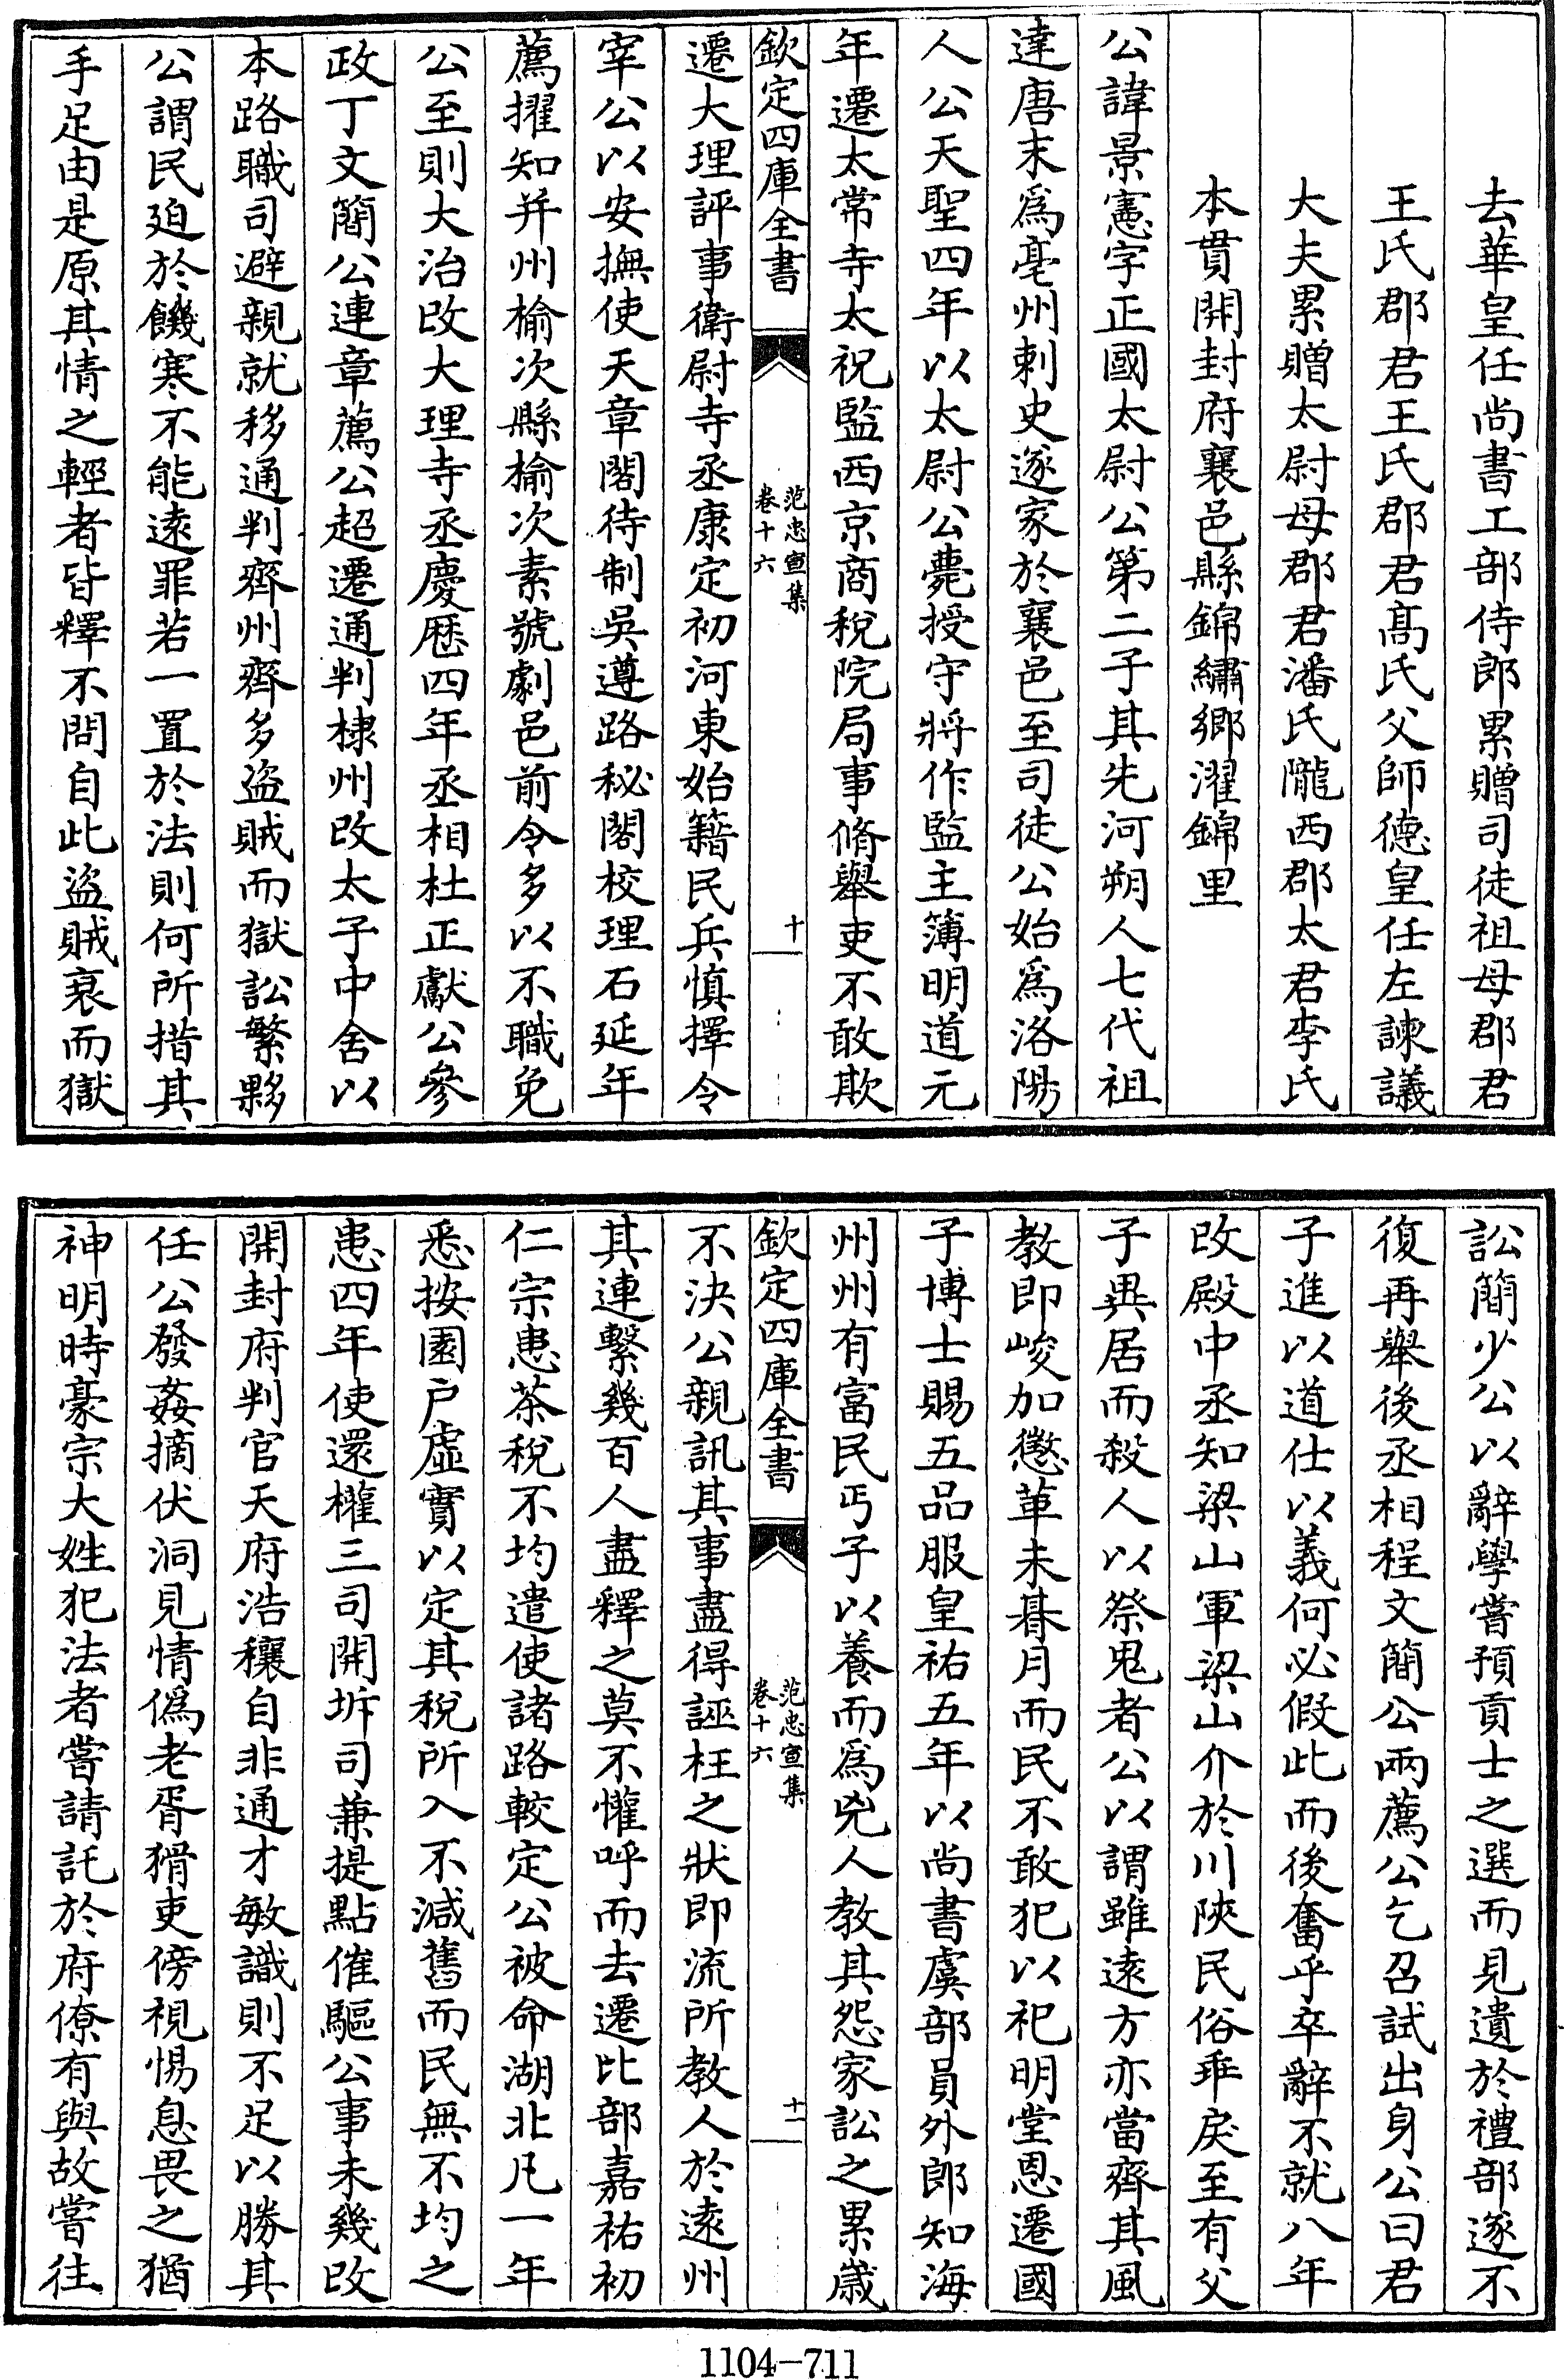 去華皇任尚書工部侍郎累贈司徒祖母郡君
王氏郡君王氏郡君髙氏父師德皇任左諫議
大夫累贈太尉母郡君潘氏隴西郡太君李氏
本貫開封府襄邑縣錦繡鄉濯錦里
公諱景憲字正國太尉公第二子其先河朔人七代祖
達唐末爲亳州刺史遂家於襄邑至司徒公始爲洛陽
人公天聖四年以太尉公薨授守將作監主簿明道元
年遷太常寺太祝監西京商稅院局事脩舉吏不敢欺
欽定四庫全書
范忠宣集
卷十六
十
遷大理評事衛尉寺丞康定初河東始籍民兵慎擇令
宰公以安撫使天章閣待制吳遵路秘閣校理石延年
薦擢知并州榆次縣榆次素號劇邑前令多以不職免
公至則大治改大理寺丞慶歴四年丞相杜正獻公參
政丁文簡公連章薦公超遷通判棣州改太子中舍以
本路職司避親就移通判齊州齊多盜賊而獄訟繁夥
公謂民廹於饑寒不能遠罪若一置於法則何所措其
手足由是原其情之輕者皆釋不問自此盜賊衰而獄
訟簡少公以辭學嘗預貢士之選而見遺於禮部遂不
復再舉後丞相程文簡公兩薦公乞召試出身公曰君
子進以道仕以義何必假此而後奮乎卒辭不就八年
改殿中丞知梁山軍梁山介於川陜民俗乖戾至有父
子異居而殺人以祭鬼者公以謂雖遠方亦當齊其風
教即峻加懲革未朞月而民不敢犯以祀明堂恩遷國
子博士賜五品服皇祐五年以尚書虞部員外郎知海
州州有富民丐子以養而爲兇人教其怨家訟之累歲
欽定四庫全書
范忠宣集
卷十六
十一
不決公親訊其事盡得誣枉之狀即流所教人於遠州
其連繫幾百人盡釋之莫不懽呼而去遷比部嘉祐初
仁宗患茶稅不均遣使諸路較定公被命湖北凡一年
悉按園戶虛實以定其稅所入不減舊而民無不均之
患四年使還權三司開坼司兼提點催驅公事未幾改
開封府判官天府浩穰自非通才敏識則不足以勝其
任公發姦摘伏洞見情僞老胥猾吏傍視惕息畏之猶
神明時豪宗大姓犯法者嘗請託於府僚有與故嘗往
1104-711